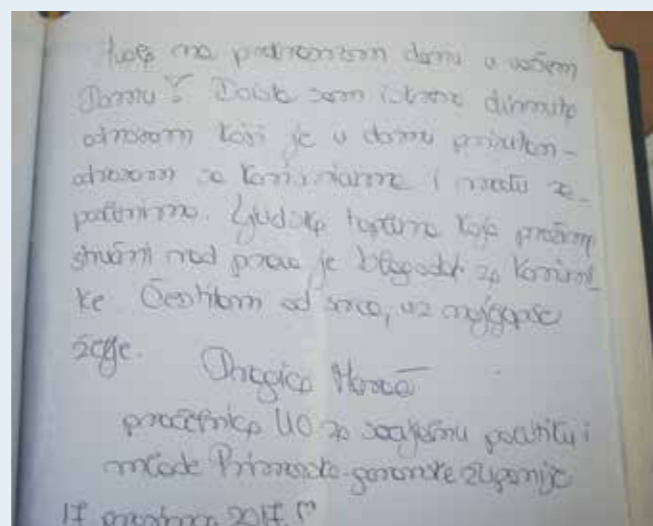 Hvala na prekrasnom danu u vašem
Domu! Doista sam iskreno dirnuta
odnosom koji je u domu prisutan -
odnosom sa korisnicima i među za-
poslenima. Ljudska toplina koja prožima
stručni rad pravi je blagodat za korisni-
ke. Čestitam od srca, uz najljepše
želje.
Dragica
pročelnica UO za socijalnu politiku i
mlade Primorsko-goranske županije
17. prosinca 2017.